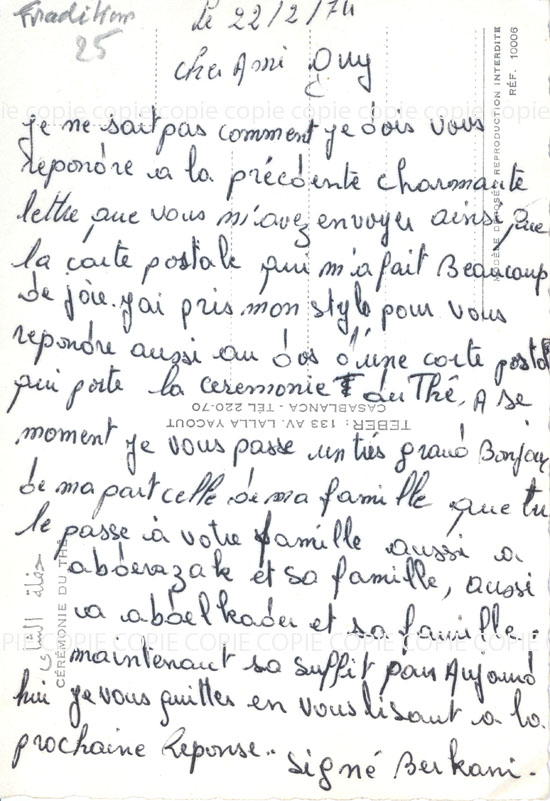 Tradition
25
le 22/2/74
cher Ami Guy
je ne sait pas comment je dois vous
repondre a la précédente charmante
lettre que vous m'avez envoyer ainsi que
la carte postale qui m'a fait Beaucoup
de joie. j'ai pris mon stylo pour vous
repondre aussi au dos d'une carte postal
qui porte la ceremonie du Thé, A se
moment je vous passe un très grand Bonjour
de ma part celle de ma famille que tu
le passe à votre famille aussi a
abderazak et sa famille, aussi
a abdelkader et sa famille.
maintenant sa suffit pour Aujourd
hui je vous quitter en vous disant a la
prochaine Reponse..
signé Berkani.
MODÈLE DÉPOSÉ REPRODUCTION INTERDITE
RÉF. 10006
TEBER : 133 AV. LALLA YACOUT
CASABLANCA - TÉL 220-70
حفلة الشاي
CÉRÉMONIE DU THÉ
COPIE COPIE COPIE COPIE COPIE COPIE COPIE
COPIE COPIE COPIE COPIE COPIE COPIE COPIE